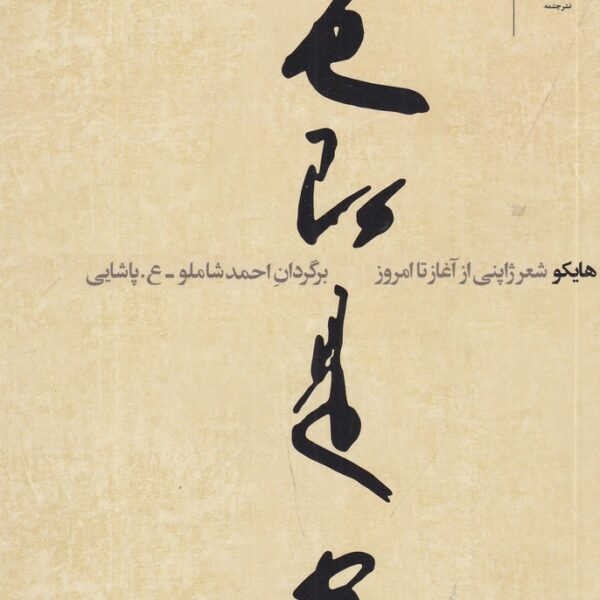 نشر چشمه
هایکو شعر ژاپنی از آغاز تا امروز برگردانِ احمد شاملو - ع. پاشایی
色即是